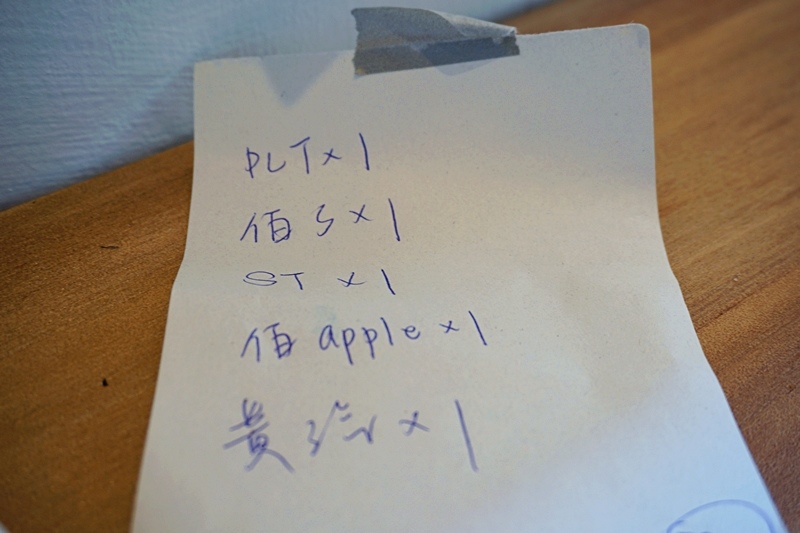 PLT×1
佰 S×1
ST ×1
佰 apple ×1
黄 汽 ×1